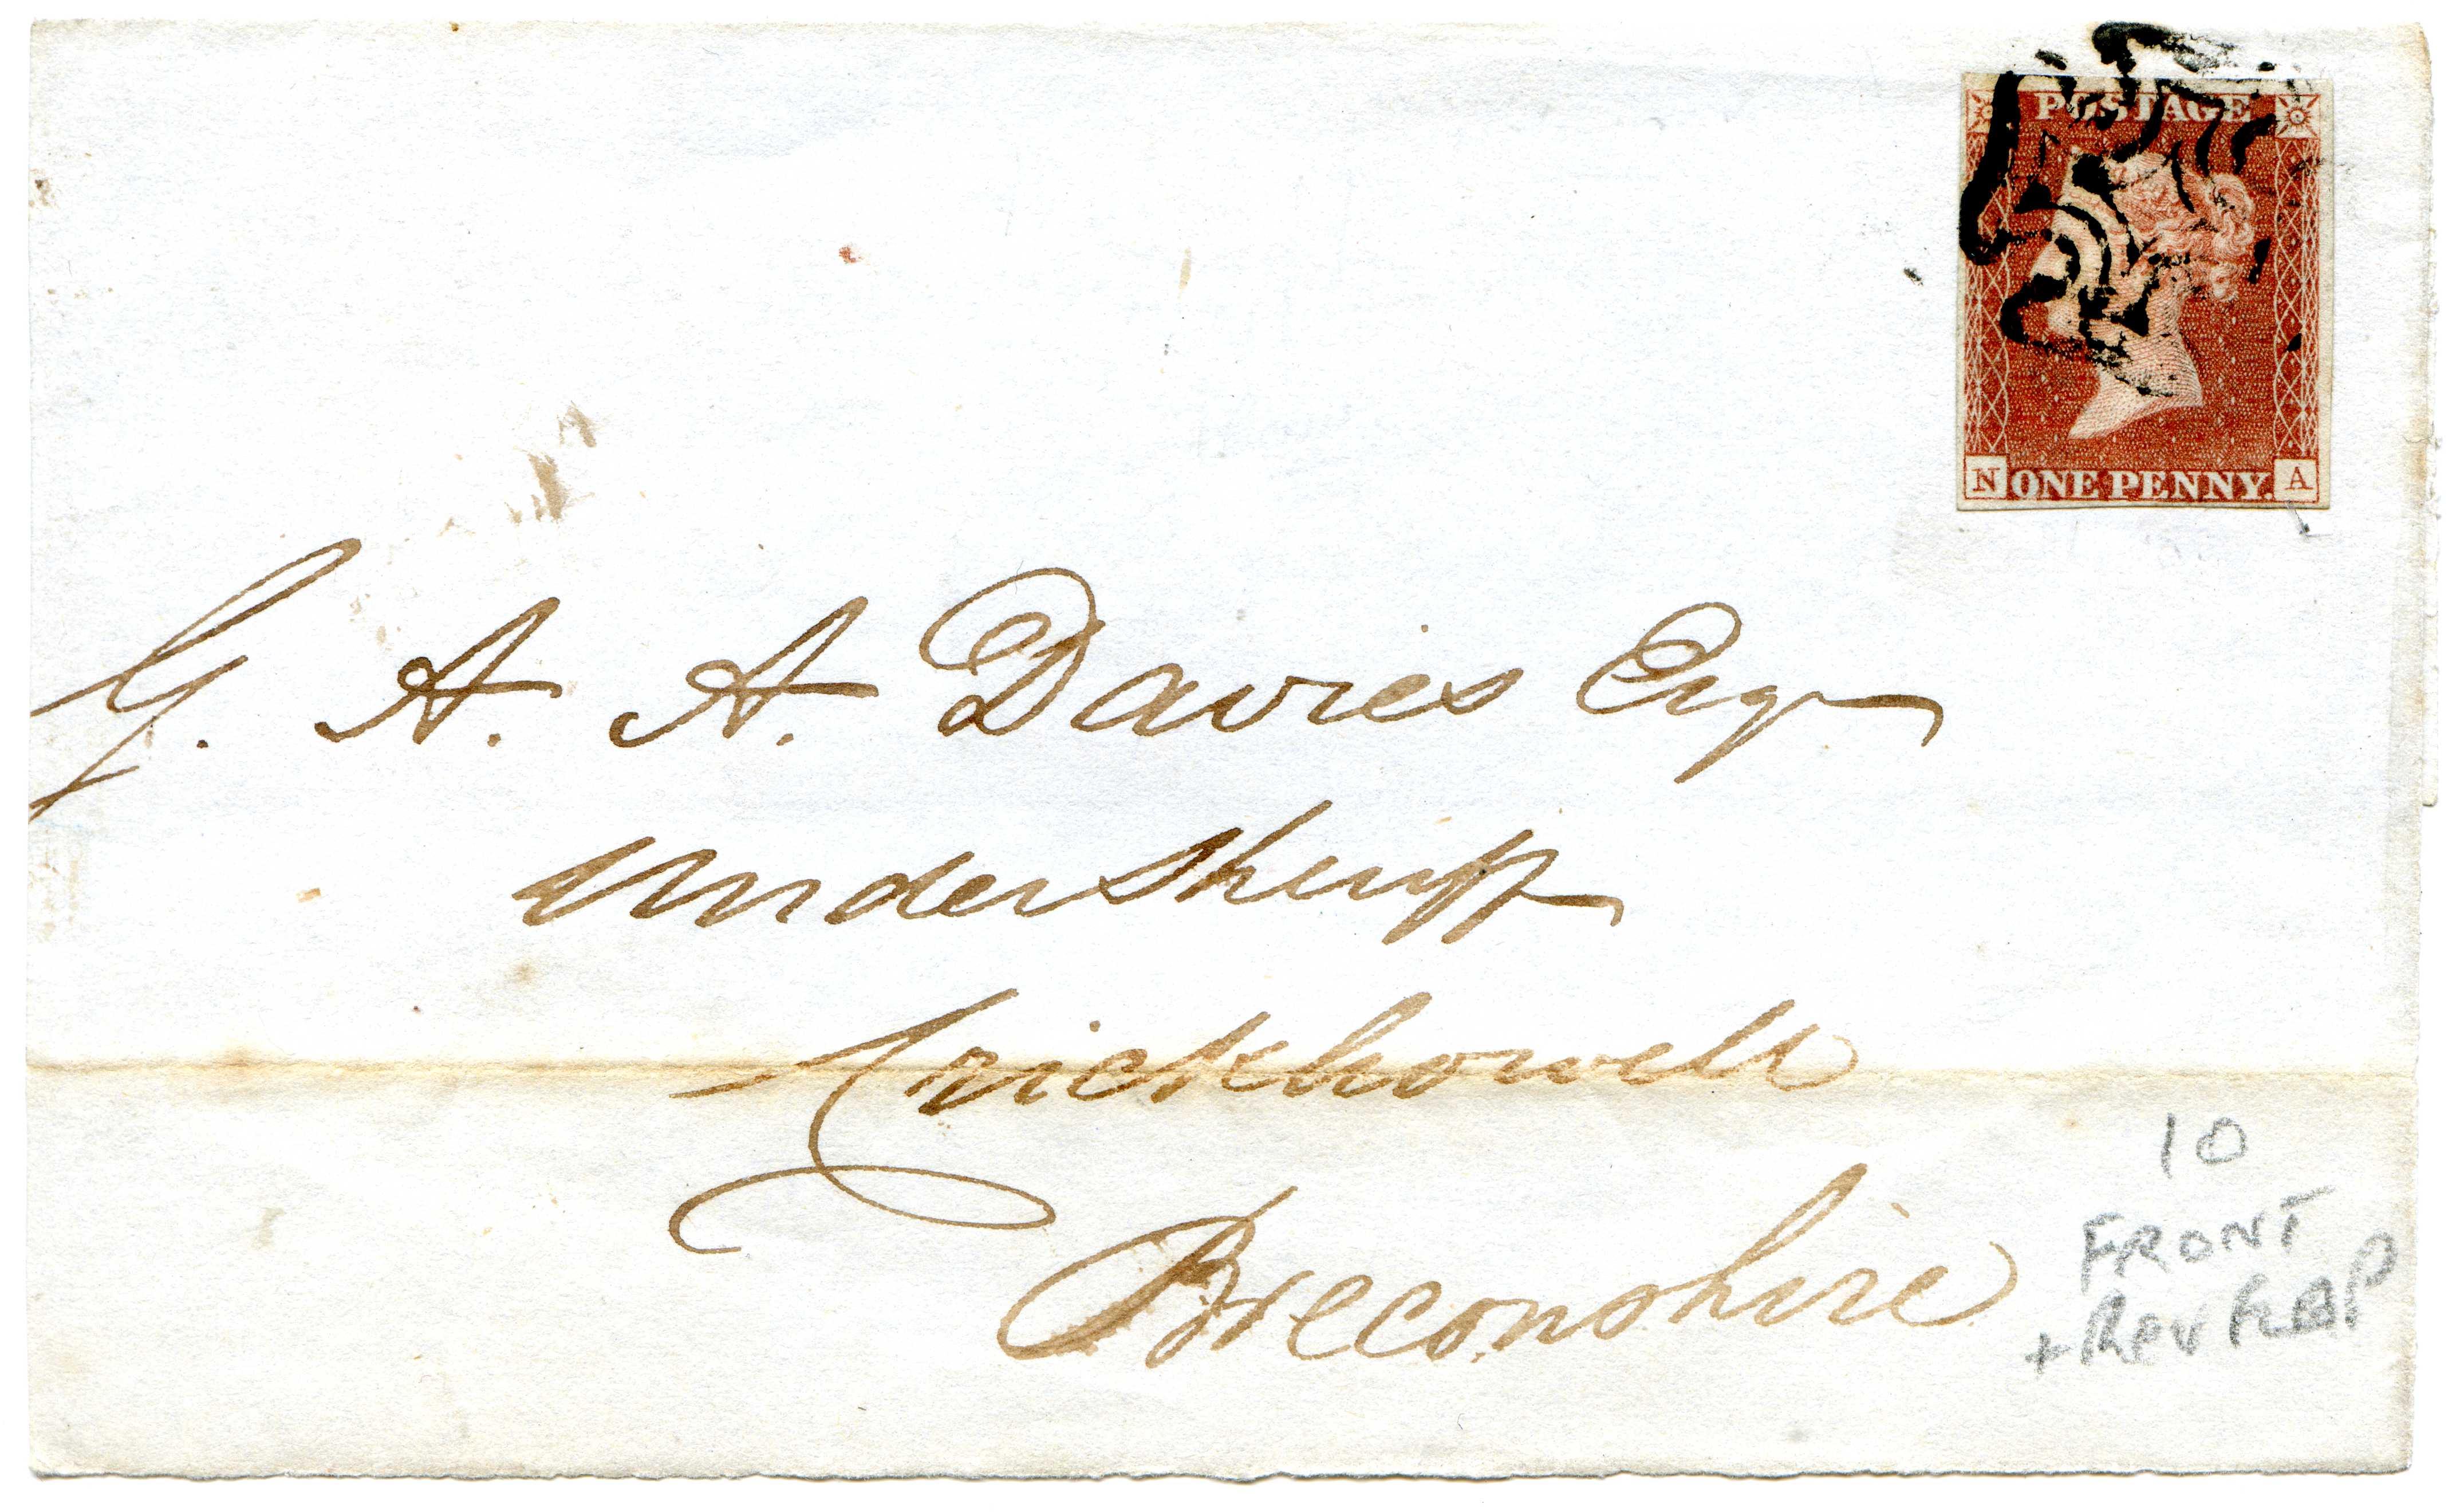 POSTAGE
N ONE PENNY. A
G. A. A. Davies Esqr
Undersheriff
Crickhowell
Breconshire
10
FRONT
+ Rev FLAP